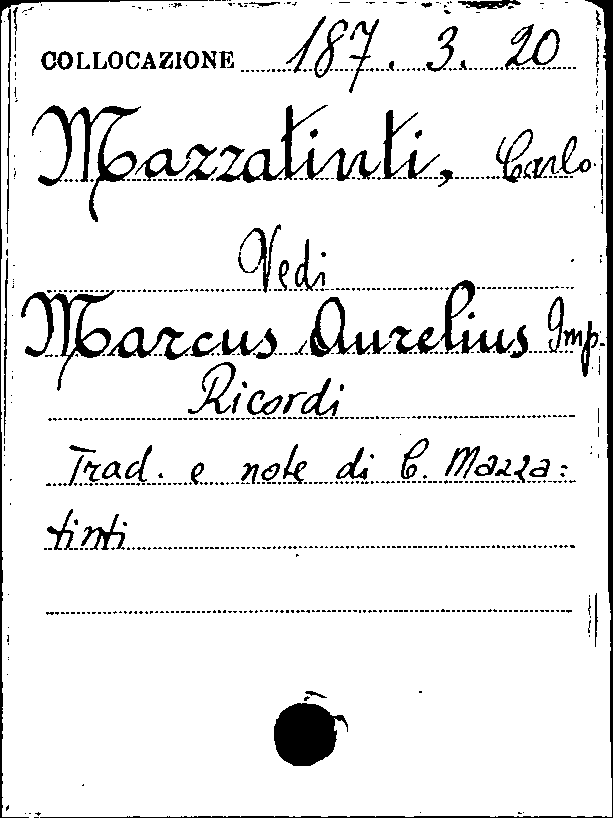 COLLOCAZIONE 187. 3. 20
Mazzatinti, Carlo
Vedi
Marcus Aurelius Imp.
Ricordi
Trad. e note di C. Mazza:
tinti